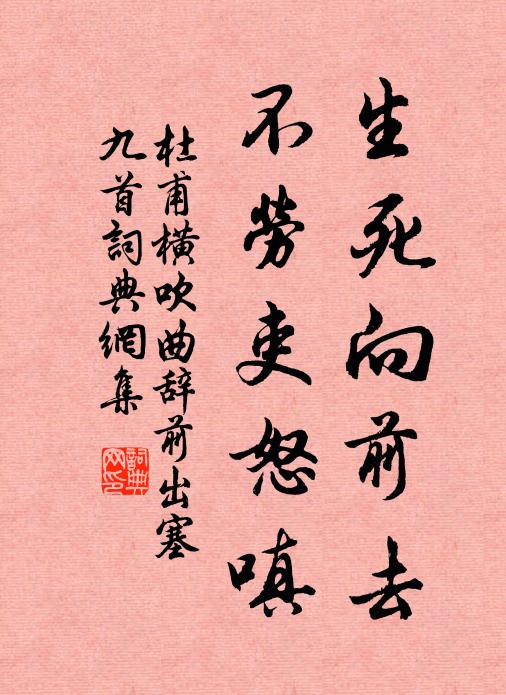 生死向前去
不勞吏怒嗔
杜甫横吹曲辞前出塞
九首詞典網集
詞典网印